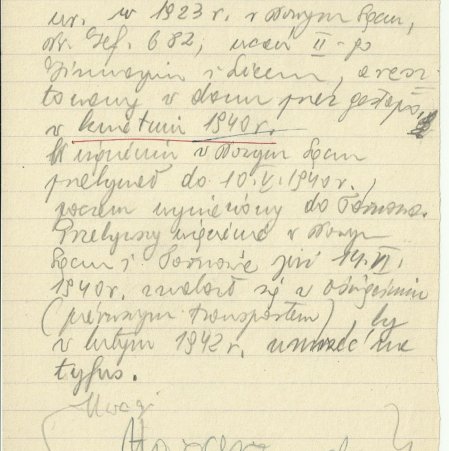 ur. w 1923 r. w Nowym Sączu,
nr. 682, uczeń II-go
Gimnazjum i Liceum, aresz
towany w domu przez gestapo
w kwietniu 1940 r.
W więzieniu w Nowym Sączu
przebywał do 10.V.1940 r.,
poczem wywieziony do Tarnowa.
Przebywszy więzienie w Nowym
Sączu i Tarnowie już 14.VI.
1940 r. znalazł się w Oświęcimiu
(pierwszym transportem), by
w lutym 1942 r. umrzeć na
tyfus.
Uwagi